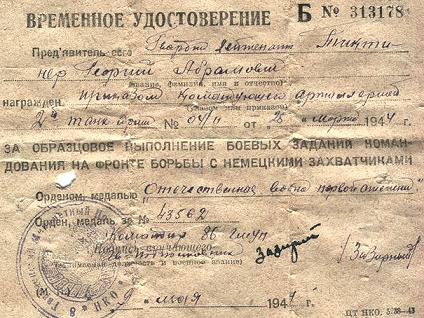 ВРЕМЕННОЕ УДОСТОВЕРЕНИЕ
Б № 313178
Пред'явитель сего Гвардии лейтенант
нер Георгий Абрамович
(звание, фамилия, имя и отчество)
награжден приказом командующего артиллерией
2й танк № 04/н от "28" марта 1944 г.
ЗА ОБРАЗЦОВОЕ ВЫПОЛНЕНИЕ БОЕВЫХ ЗАДАНИЙ КОМАН-
ДОВАНИЯ НА ФРОНТЕ БОРЬБЫ С НЕМЕЦКИМИ ЗАХВАТЧИКАМИ
Орденом, медалью "Отечественная война первой степени"
Орден, медаль за № 43562
Командир 86
Подпись вручающего
(наименование должности и военное звание)
9 " мая 1944 г.
ЦТ НКО.